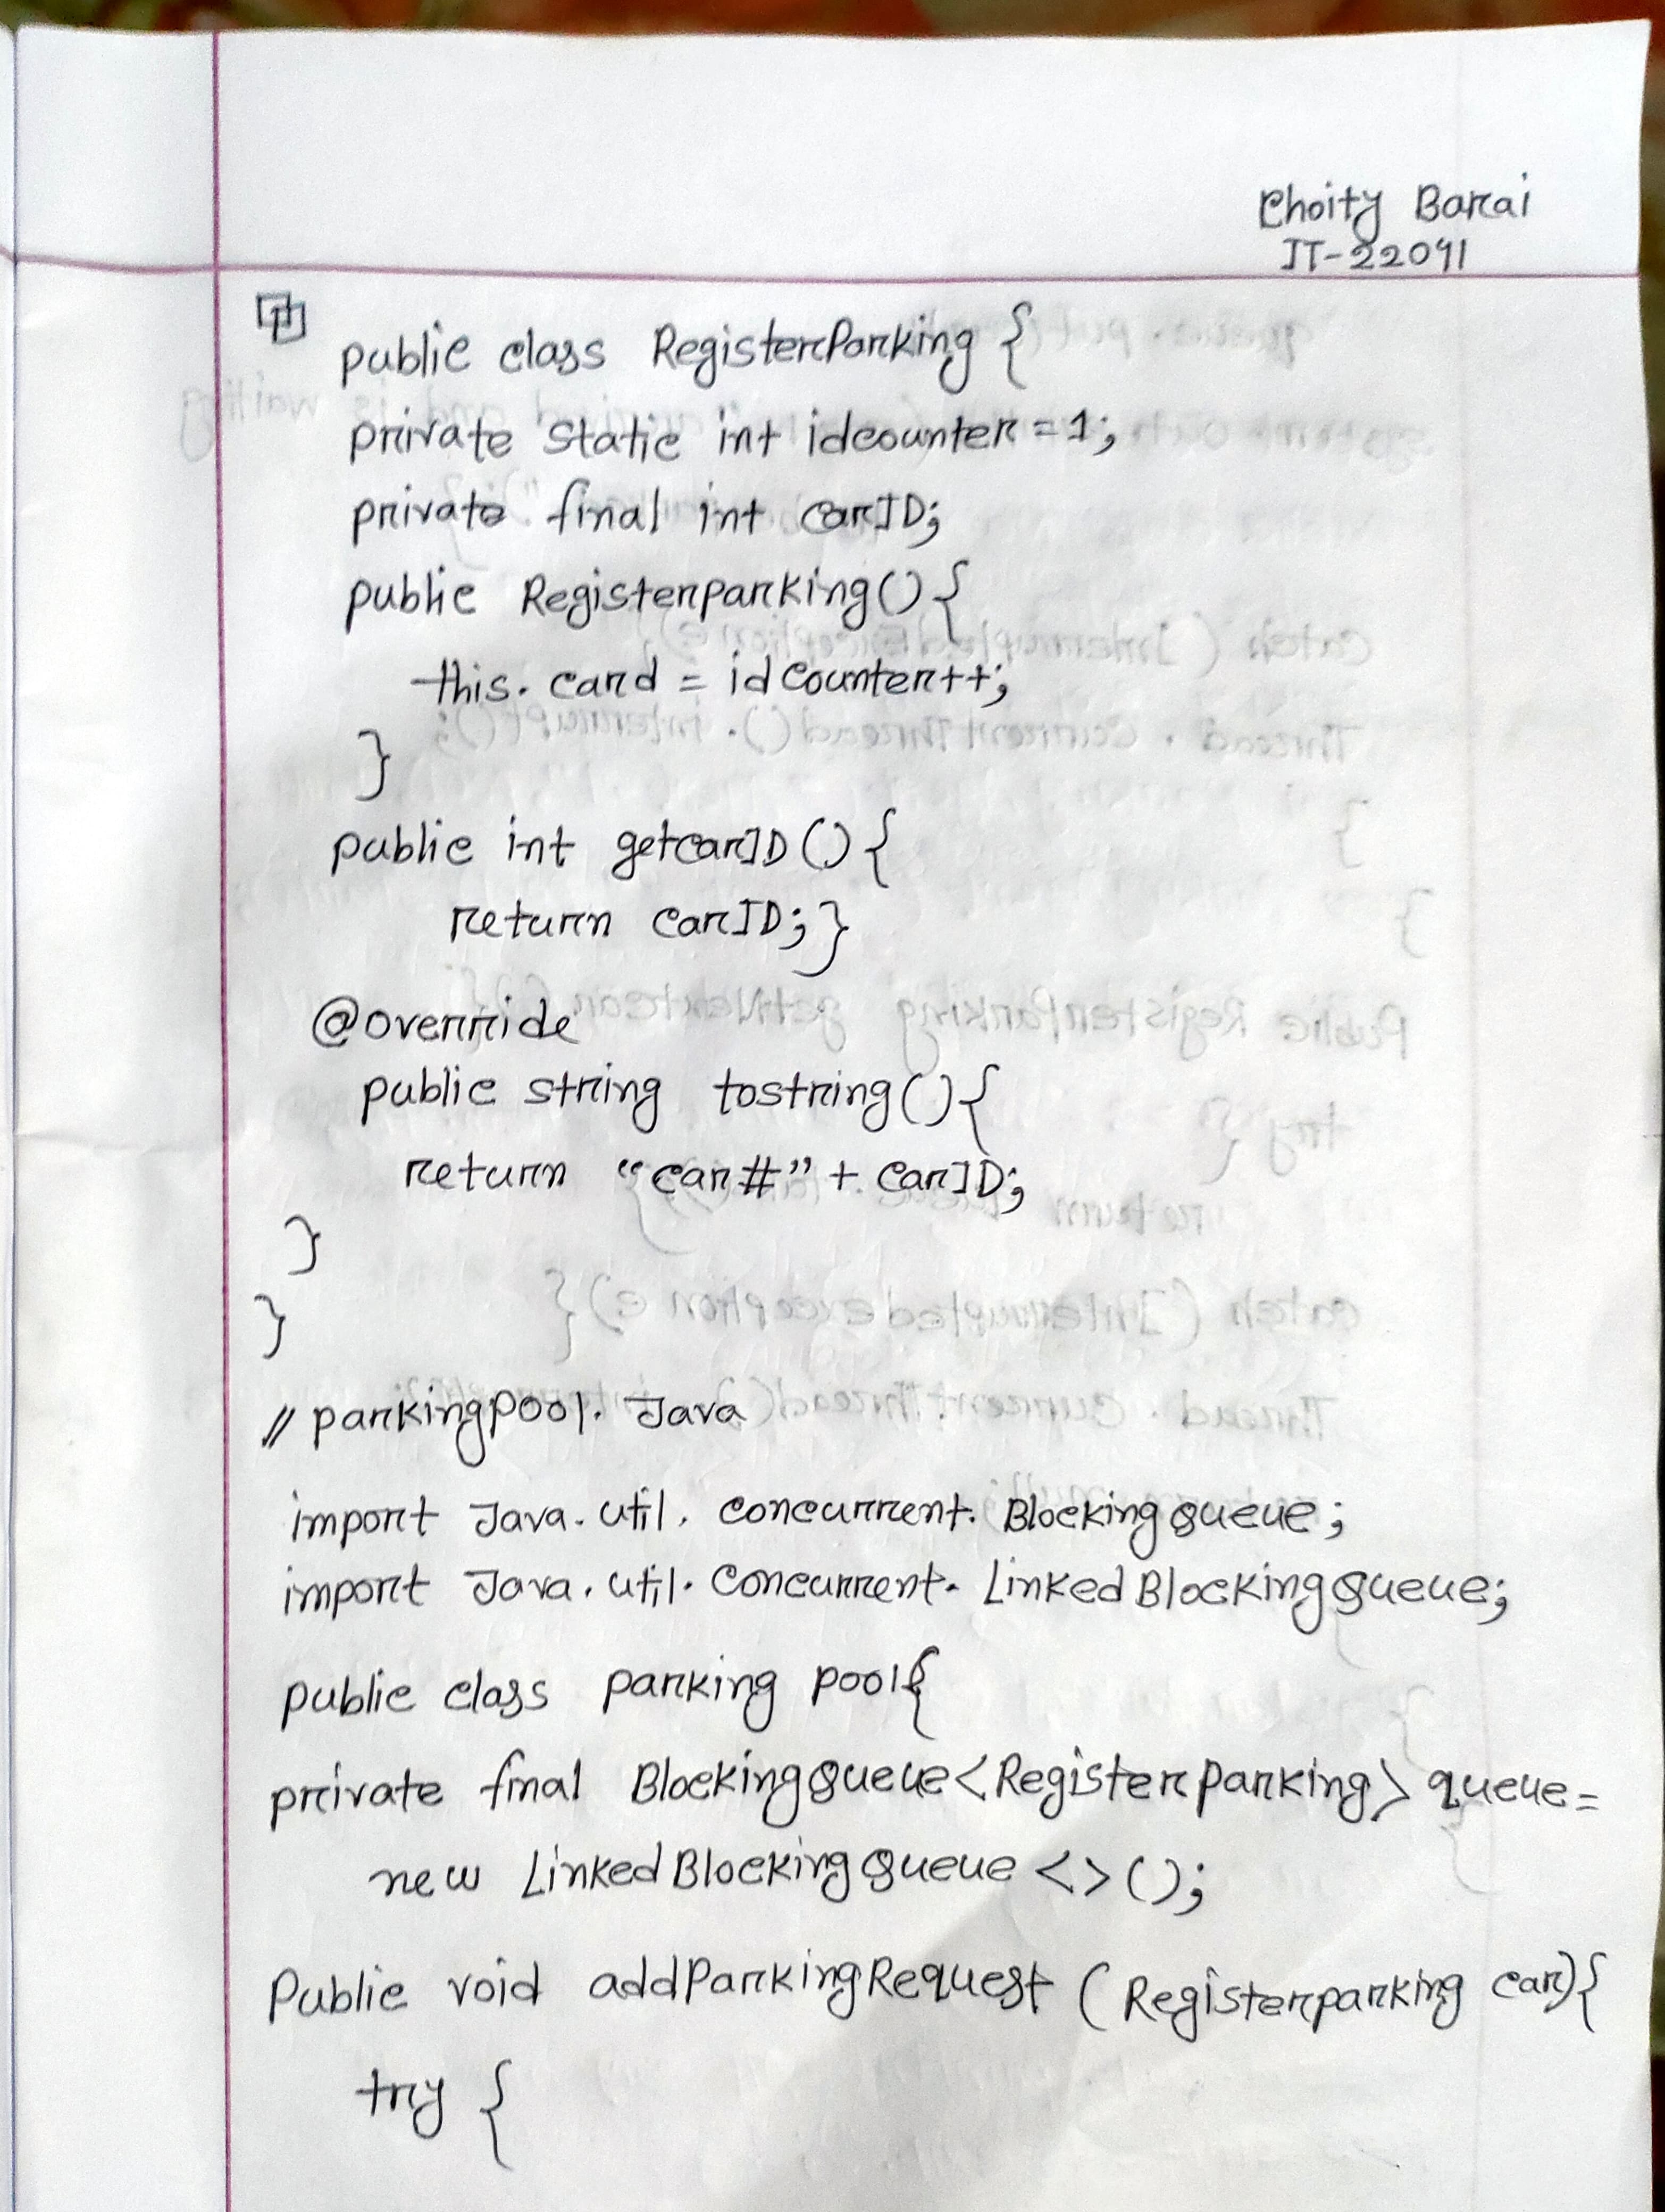 Choity Barai
IT-22091
public class RegisterParking {
private static int idcounter = 1;
private final int carID;
public Registerparking() {
this. card = idcounter++;
}
public int getcarID () {
return carID; }
@override
public string tostring () {
return "car #" + carID;
}
}
// parkingpool. Java
import Java. util. concurrent. BlockingQueue;
import Java. util. concurrent. LinkedBlockingQueue;
public class parking pool{
private final BlockingQueue<Registerparking> queue =
new LinkedBlockingQueue <> ();
Public void addParkingRequest (Registerparking car) {
try {